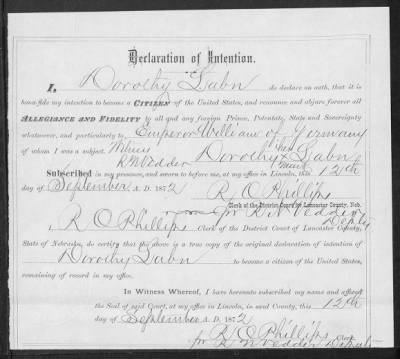 Declaration of Intention.
I, Dorothy Dabn do declare on oath, that it is
bona-fide my intention to become a CITIZEN of the United States, and renounce and abjure forever all
ALLEGIANCE AND FIDELITY to all and any foreign Prince, Potentate, State and Sovereignty
whatsoever, and particularly to Emperor William of Germany
of whom I was a subject. Witness her
R W Vedder Dorothy X Dabn
mark
Subscribed in my presence, and sworn to before me, at my office in Lincoln, this 12th
day of September A. D. 1872 R. O. Phillips
Clerk of the District Court for Lancaster County, Neb.
pr R W Vedder
Deputy
I, R O Phillips Clerk of the District Court of Lancaster County,
State of Nebraska, do certify that the above is a true copy of the original declaration of intention of
Dorothy Dabn to become a citizen of the United States,
remaining of record in my office.
In Witness Whereof, I have hereunto subscribed my name and affixed
the Seal of said Court, at my office in Lincoln, in said County, this 12th
day of September A. D. 1872
R O Phillips Clerk
pr R W Vedder Deputy